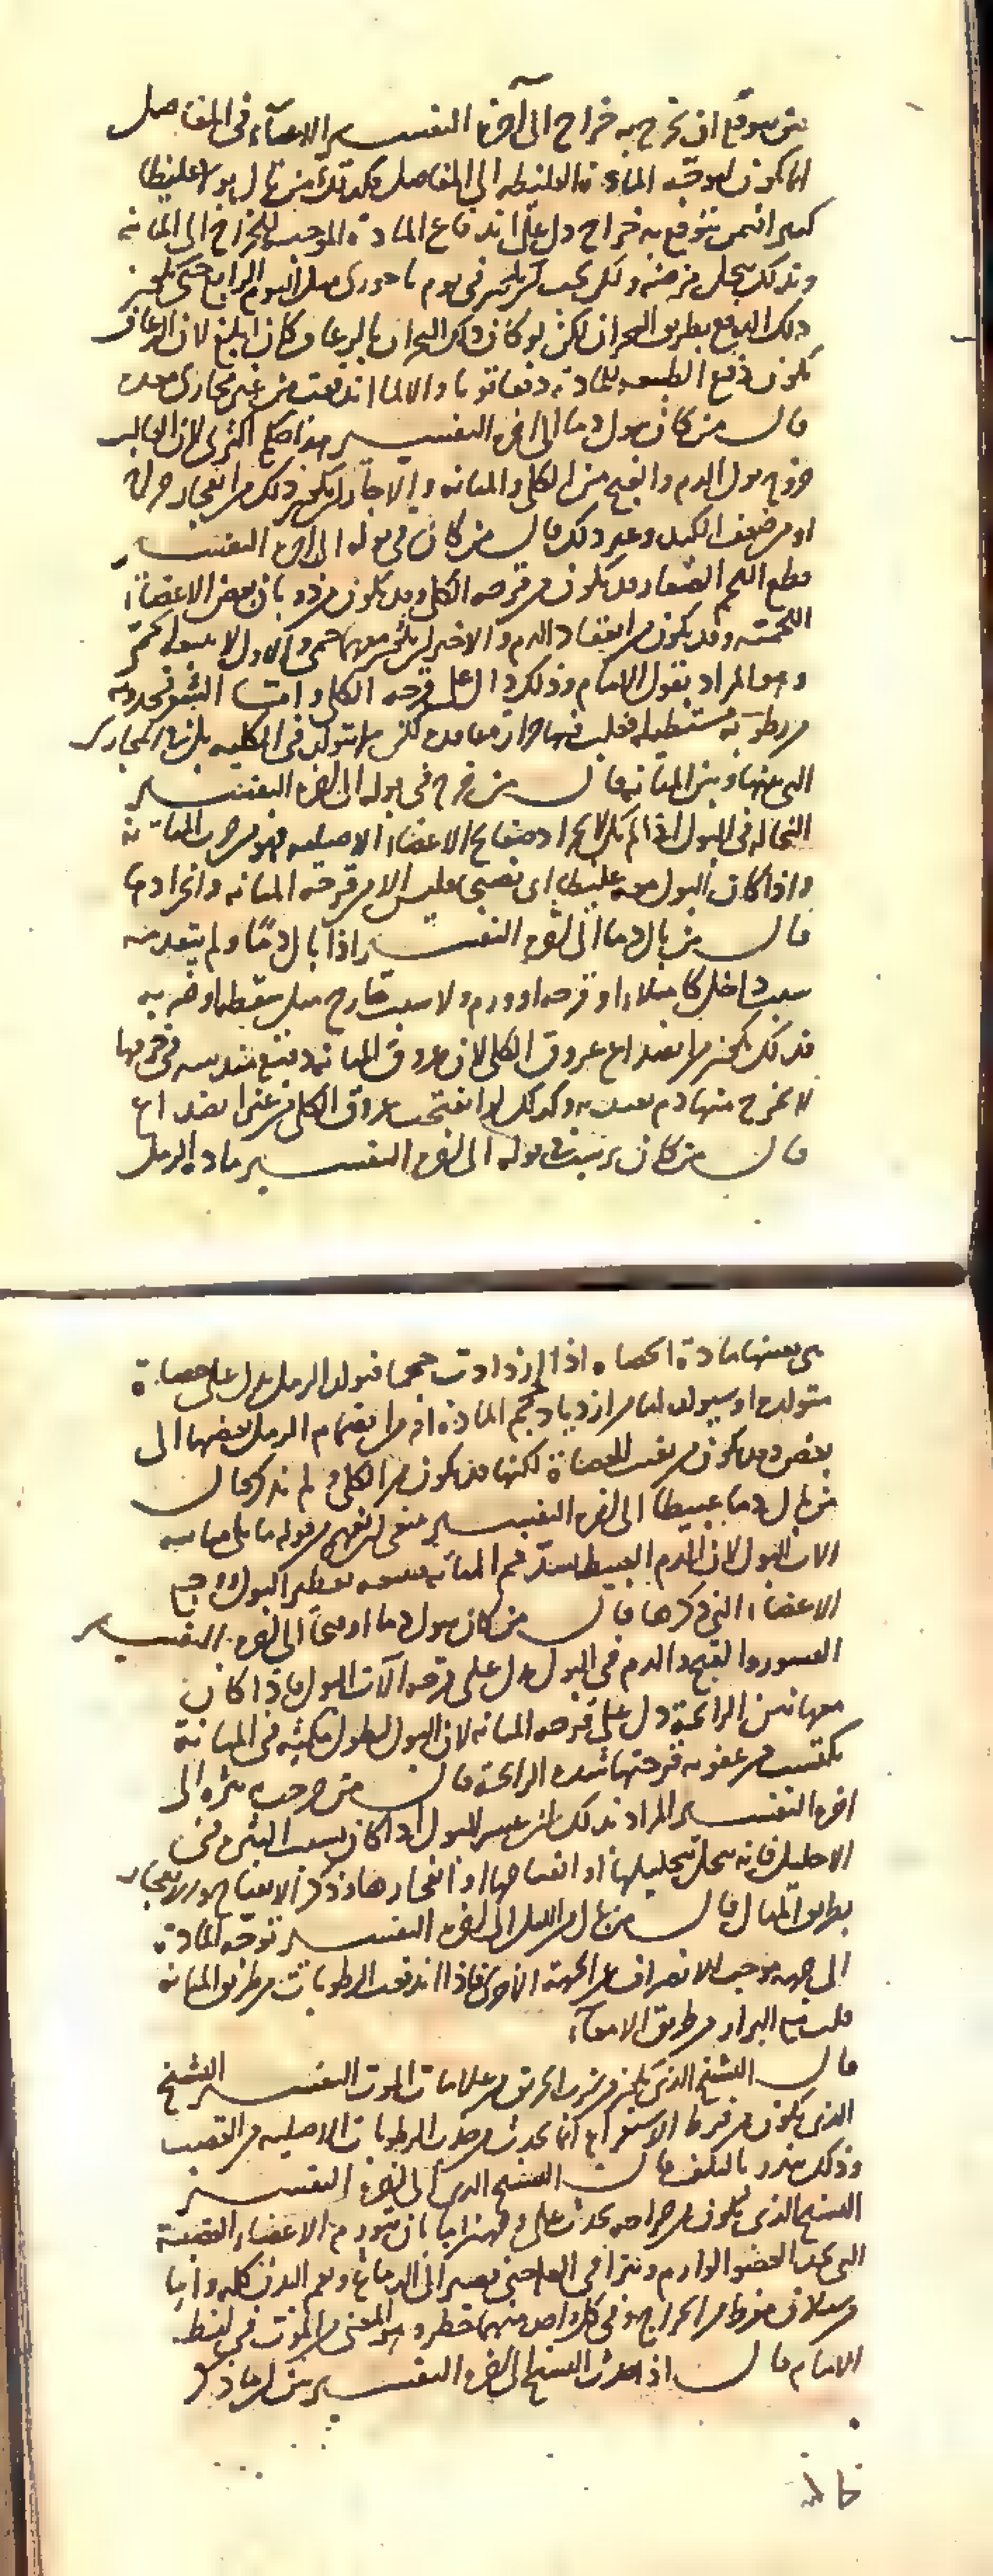 من يتوقع ان يخرج به خراج الى آخره التفسير الاعياء في المفاصل
انما يكون لتوجه المادة الغليظة الى المفاصل وكذلك من بال بولا غليظا
كثيرا فمن يتوقع به خراج دل على اندفاع المادة الموجبة للخراج الى المثانة
وبذلك ينحل مرضه ولكن يجب ان يكون في يوم باحوري مثل اليوم الرابع حتى يكون
ذلك الدفع بطريق البحران لكن لو كان ذلك البحران بالرعاف كان ابلغ لان الرعاف
يكون دفع الطبيعة للمادة دفعا قويا والا لما اندفعت من غير مجاري معدة
قال من كان يبول دما الى اخره التفسير هذا حكم اكثري لان الغالب
خروج بول الدم والقيح من الكلى والمثانة والا جاز ان يكون ذلك من انفجار جراحة
او من ضعف الكبد وغير ذلك قال من كان في بوله الى اخره التفسير
قطع اللحم الصغار قد يكون من قرحة الكلى وقد يكون من ذوبان بعض الاعضاء
اللحمية وقد يكون من انعقاد الدم والاخير ان يكون معهما حمى والاول لا يكون حمى
وهو المراد بقول الامام وذلك دال على قرحة الكلى واما الشعر فحدوثه
من رطوبة مستطيلة فعلت فيها حرارة عاقدة لكن لا يتولد في الكلية بل في المجاري
التي بينها وبين المثانة قال من خرج في بوله الى اخره التفسير
النخالة في البول اذا لم يكن لانجراد صفائح الاعضاء الاصلية فهو من جرب المثانة
واذا كان البول معه غليظا اي نضيجا فليس الا من قرحة المثانة وانجرادها
قال من بال دما الى اخره التفسير اذا بال دما ولم يتقدمه
سبب داخل كامتلاء او قرحة او ورم ولا سبب خارج مثل سقطة او ضربة
فذلك يكون من انصداع عروق الكلى لان عروق المثانة
لا يخرج منها دم يعتد به وكذلك لو انفتحت عروق الكلى من غير انصداع
قال من كان يرسب في بوله الى اخره التفسير مادة الرمل
هي بعينها مادة الحصاة اذا ازدادت حجما فتولد الرمل يدل على حصاة
متولدة او سيولد اما من ازدياد حجم المادة او من انضمام الرمل بعضها الى
بعض وقد يكون من تفتت الحصاة لكنها قد يكون من الكلى ولم يذكر قال
من بال دما عبيطا الى اخره التفسير ينبغي ان يفهم من قوله ما يلي مثانته
آلات البول لان الدم العبيط يسد فم المثانة فيتبعه تقطير البول ووجع
الاعضاء التي ذكرها قال من كان يبول دما او قيحا الى اخره التفسير
القشور والقيح والدم في البول يدل على قرحة آلات البول فاذا كان
معها نتن الرائحة دل على قرحة المثانة لان البول لطول مكثه في المثانة
يكتسب من عفونة قرحتها شدة الرائحة قال من خرجت به بثرة الى
اخره التفسير المراد بذلك ان عسر البول اذا كان بسبب البثرة في
الاحليل فانه ينحل بتحليلها او انفتاحها او انفجارها وذكر الانفتاح والانفجار
بطريق المثال قال من بال من الليل الى اخره التفسير توجه المادة
الى جهة موجب الانصراف عن الجهة الاخرى فاذا اندفعت الرطوبات من طريق المثانة
قلت في البراز من طريق الامعاء
قال التشنج الذي يكون من شرب الخربق من علامات الموت التفسير التشنج
الذي يكون من فرط الاستفراغ انما يحدث من جذب الرطوبات الاصلية من العصب
وذلك منذر بالتلف قال التشنج الذي الى اخره التفسير
التشنج الذي يكون من جراحة يحدث على وجهين اما بان يتورم الاعضاء العصبية
التي تحت العضو الوارم ويترا في العلة حتى يصير الى الدماغ ويعم البدن كله واما
من سيلان مفرط من الجراح وفي كل واحد منهما خطر وهو المعني من الموت في لفظ
الامام قال اذا حدث التشنج الى اخره التفسير بين لما ذكر